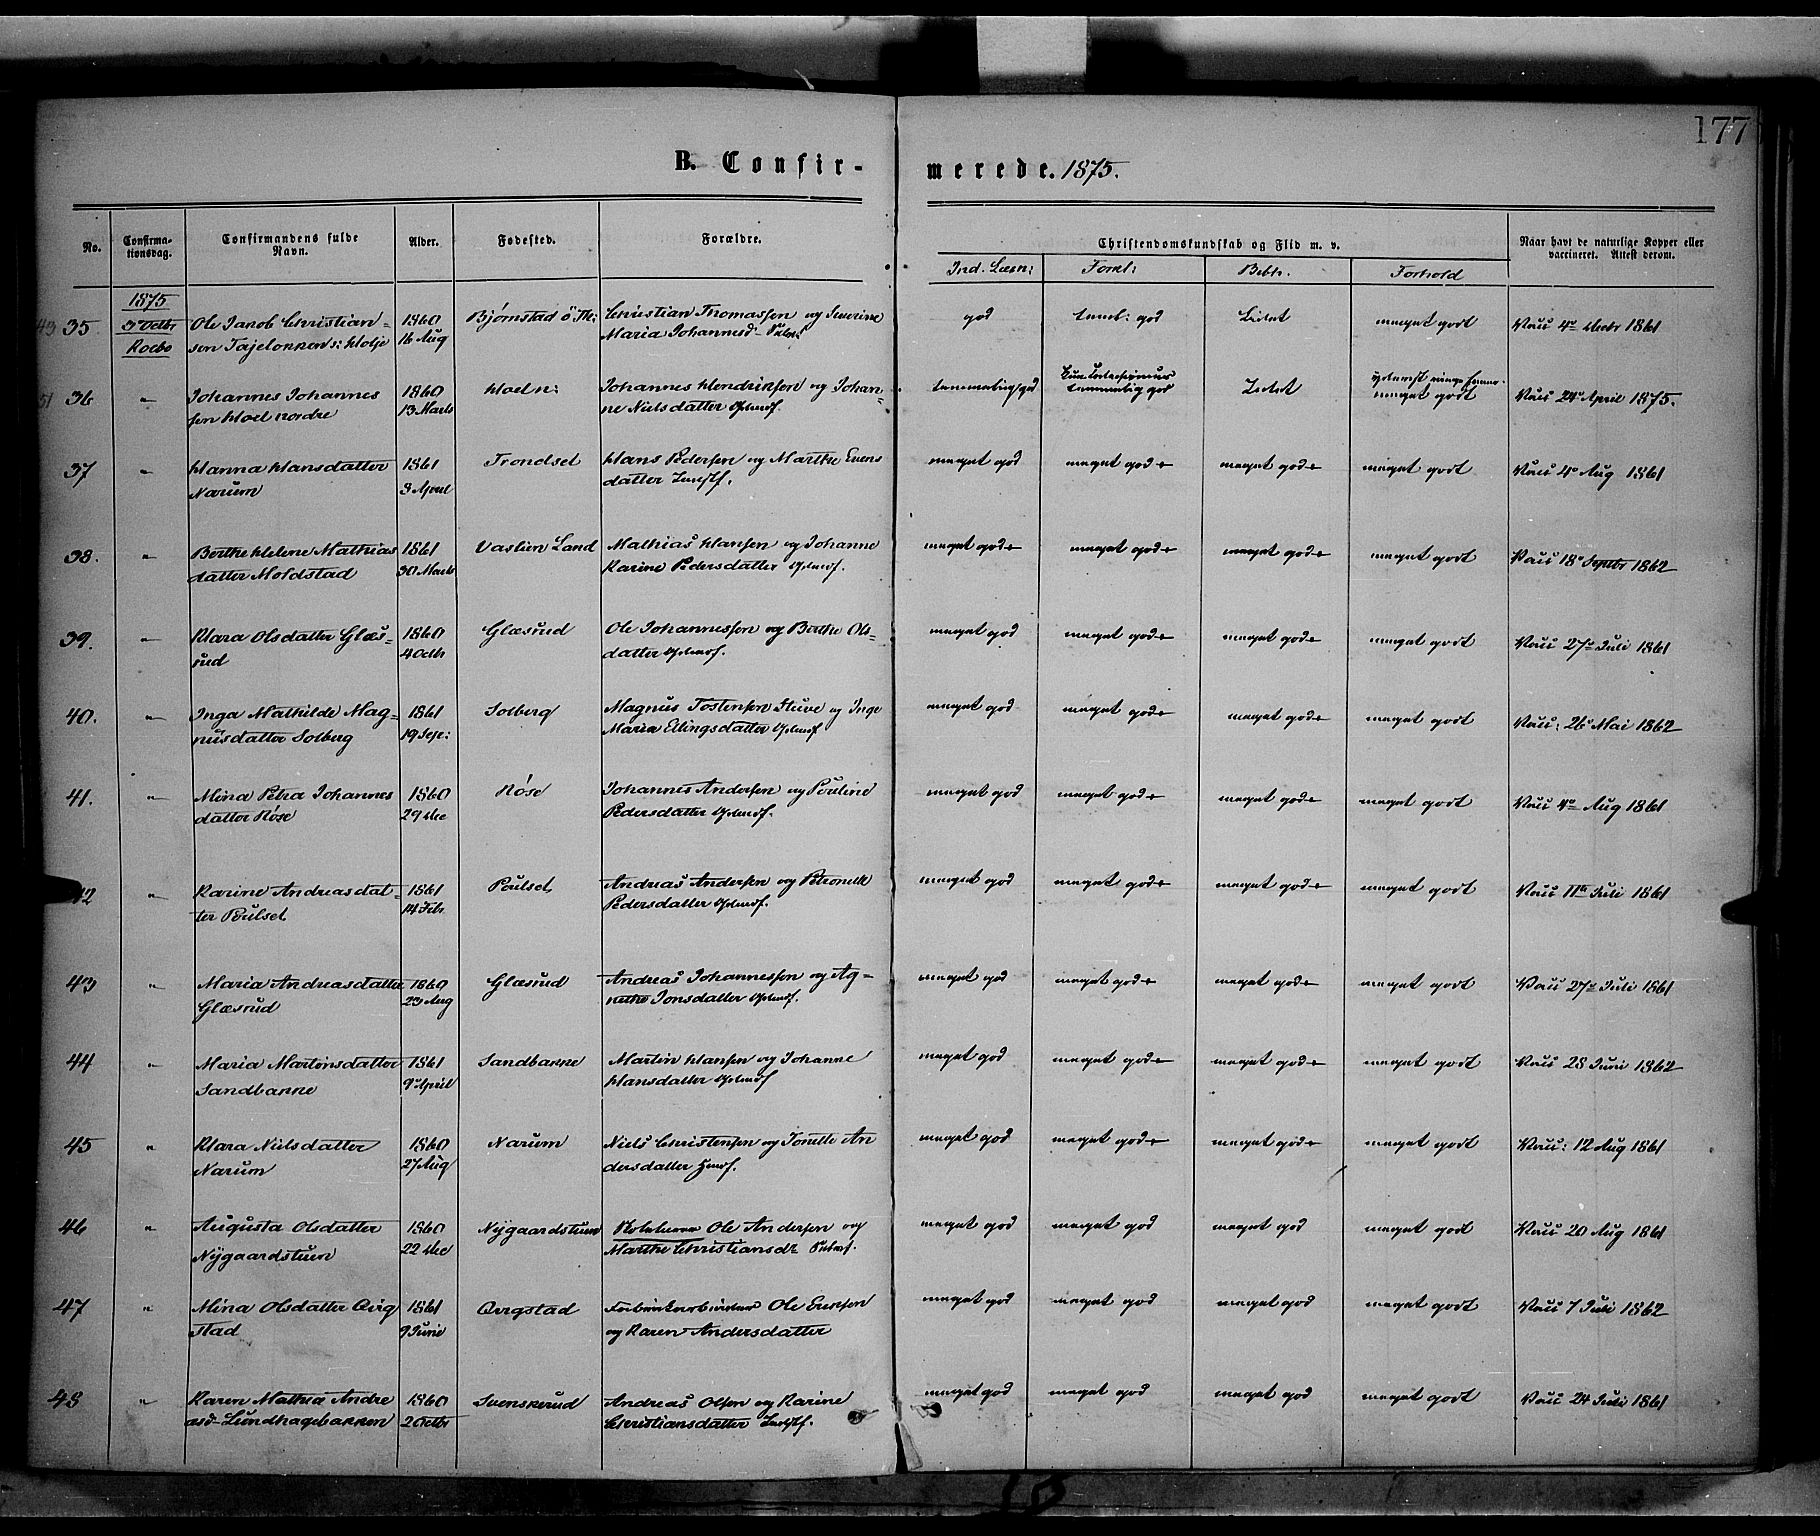 177
B. Confir-
merede. 1875.
No.
Confirma-
tionsdag.
Confirmandens fulde
Navn.
Alder.
Fødested.
Forældre.
Christendomskundskab og Flid m. v.
Naar havt de naturlige Kopper eller
vaccineret. Attest derom.
Ind. Læsn: Forst: Beth. Forhold
1875
35 3 Octbr Ole Jacob Christian- 1860 Bjørnstad Christian Thomassen og Severine god god meget godt Vacc 1861
sen 16 Aug Maria Johannesd-
36 " Johannes Johannes 1860 Hoel n: Johannes Hendriksen og Johan- temmelig god temmelig god meget godt Vacc 24 April 1875.
sen Hoel nordre 13 Marts ne Nielsdatter
37 " Hanna Hansdatter 1861 Trondset Hans Pedersen og Marthe Evens meget god meget god meget god meget godt Vacc 4 Aug 1861
Narum 3 April datter
38. " Berthe Helene Mathias 1861 Land Mathias Hansen og Johanne meget god meget god meget god meget godt Vacc 18 Septbr 1862
datter Moldstad 30 Marts Karine Pedersdatter
39. " Klara Olsdatter Glæs- 1860 Glæsrud Ole Johannessen og Berthe Ols- meget god meget god meget god meget godt Vacc 27 Juli 1861
rud 4 Octbr datter
40. " Inga Mathilde Mag- 1861 Solberg Magnus Tostensen og Inge meget god meget god meget god meget godt Vacc: 26 Mai 1862
nusdatter Solberg 19 Maria Ellingsdatter
41. " Mina Petra Johannes 1860 Røse Johannes Andersen og Pouline meget god meget god meget god meget godt Vacc 4 Aug 1861
datter Røse 29 Dec Pedersdatter
42 " Karine Andreasdat- 1861 Poulset Andreas Andersen og Petronelle meget god meget god meget god meget godt Vacc 11 Juli 1861
ter Poulset 14 Febr Pedersdatter
43 " Maria Andreasdatter 1860 Glæsrud Andreas Johannessen og Ag- meget god meget god meget god meget godt Vacc 27 Juli 1861
Glæsrud 23 Aug nethe Jonsdatter
44 " Maria Martinsdatter 1861 Sandbakke Martin Hansen og Johanne meget god meget god meget god meget godt Vacc 28 Juni 1862
Sandbakke 9 April Hansdatter
45 " Klara Nielsdatter 1860 Narum Niels Christensen og Jonette An meget god meget god meget god meget godt Vacc: 12 Aug 1861
Narum 27 Aug dersdatter
46 " Augusta Olsdatter 1860 Nygaardstuen Ole Andersen og meget god meget god meget god meget god Vacc 20 Aug 1861
Nygaardstuen 22 Dec Marthe Christiansdr
47 " Mina Olsdatter Qvig 1861 Qvigstad Ole Ericksen meget god meget god meget god meget godt Vacc 7 Juli 1862
stad 9 Junie og Karen Andersdatter
48 " Karen Mathea Andre 1860 Svenskerud Andreas Olsen og Karine meget god meget god meget god meget godt Vacc 24 Juli 1861
asd- Lundhagebakken 2 Octbr Christiansdatter